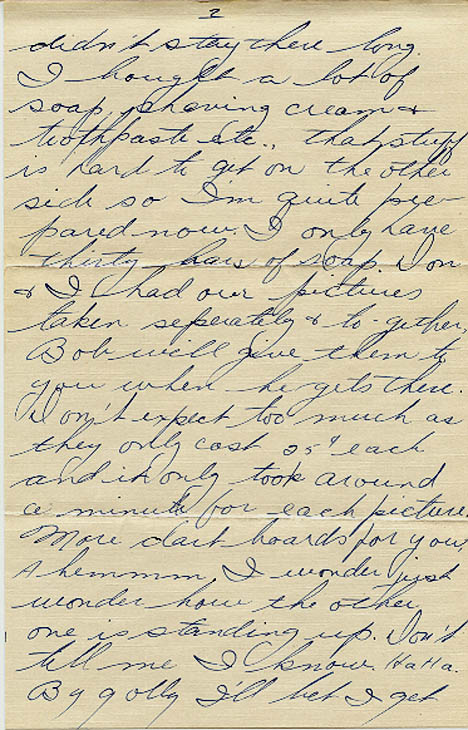 2
didn't stay there long.
I bought a lot of
soap, shaving cream +
toothpaste etc., that stuff
is hard to get on the other
side so I'm quite pre-
pared now. I only have
thirty bars of soap. Don
+ I had our pictures
taken seperately + to-gether,
Bob will give them to
you when he gets there.
Don't expect too much as
they only cost 25¢ each
and it only took around
a minute for each picture.
More dart boards for you,
Ahemmm I wonder, just
wonder how the other
one is standing up. Don't
tell me I know. HaHa.
By golly I'll bet I get